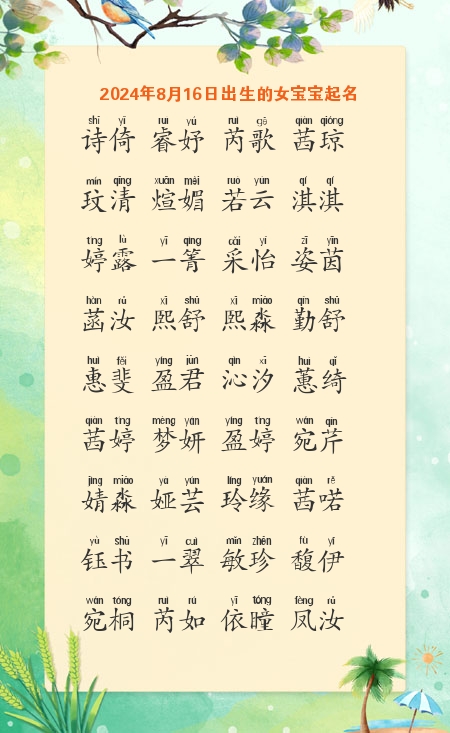 2024年8月16日出生的女宝宝起名
shī yǐ ruì yú ruì gē qiàn qióng
诗倚 睿妤 芮歌 茜琼
mín qīng xuān mèi ruò yún qí qí
玟清 煊媚 若云 淇淇
tíng lù yī qìng cǎi yí zī yīn
婷露 一箐 采怡 姿茵
hàn rǔ xī shū xī miǎo qín shū
菡汝 熙舒 熙淼 勤舒
huì fěi yíng jūn qìn xī huì qǐ
惠斐 盈君 沁汐 蕙绮
qiàn tíng mèng yán yíng tíng wǎn qín
茜婷 梦妍 盈婷 宛芹
jìng miǎo yà yún líng yuán qiàn rě
婧淼 娅芸 玲缘 茜喏
yù shū yī cuì mǐn zhēn fù yī
钰书 一翠 敏珍 馥伊
wǎn tóng ruì rú yī tóng fèng rǔ
宛桐 芮如 依瞳 凤汝